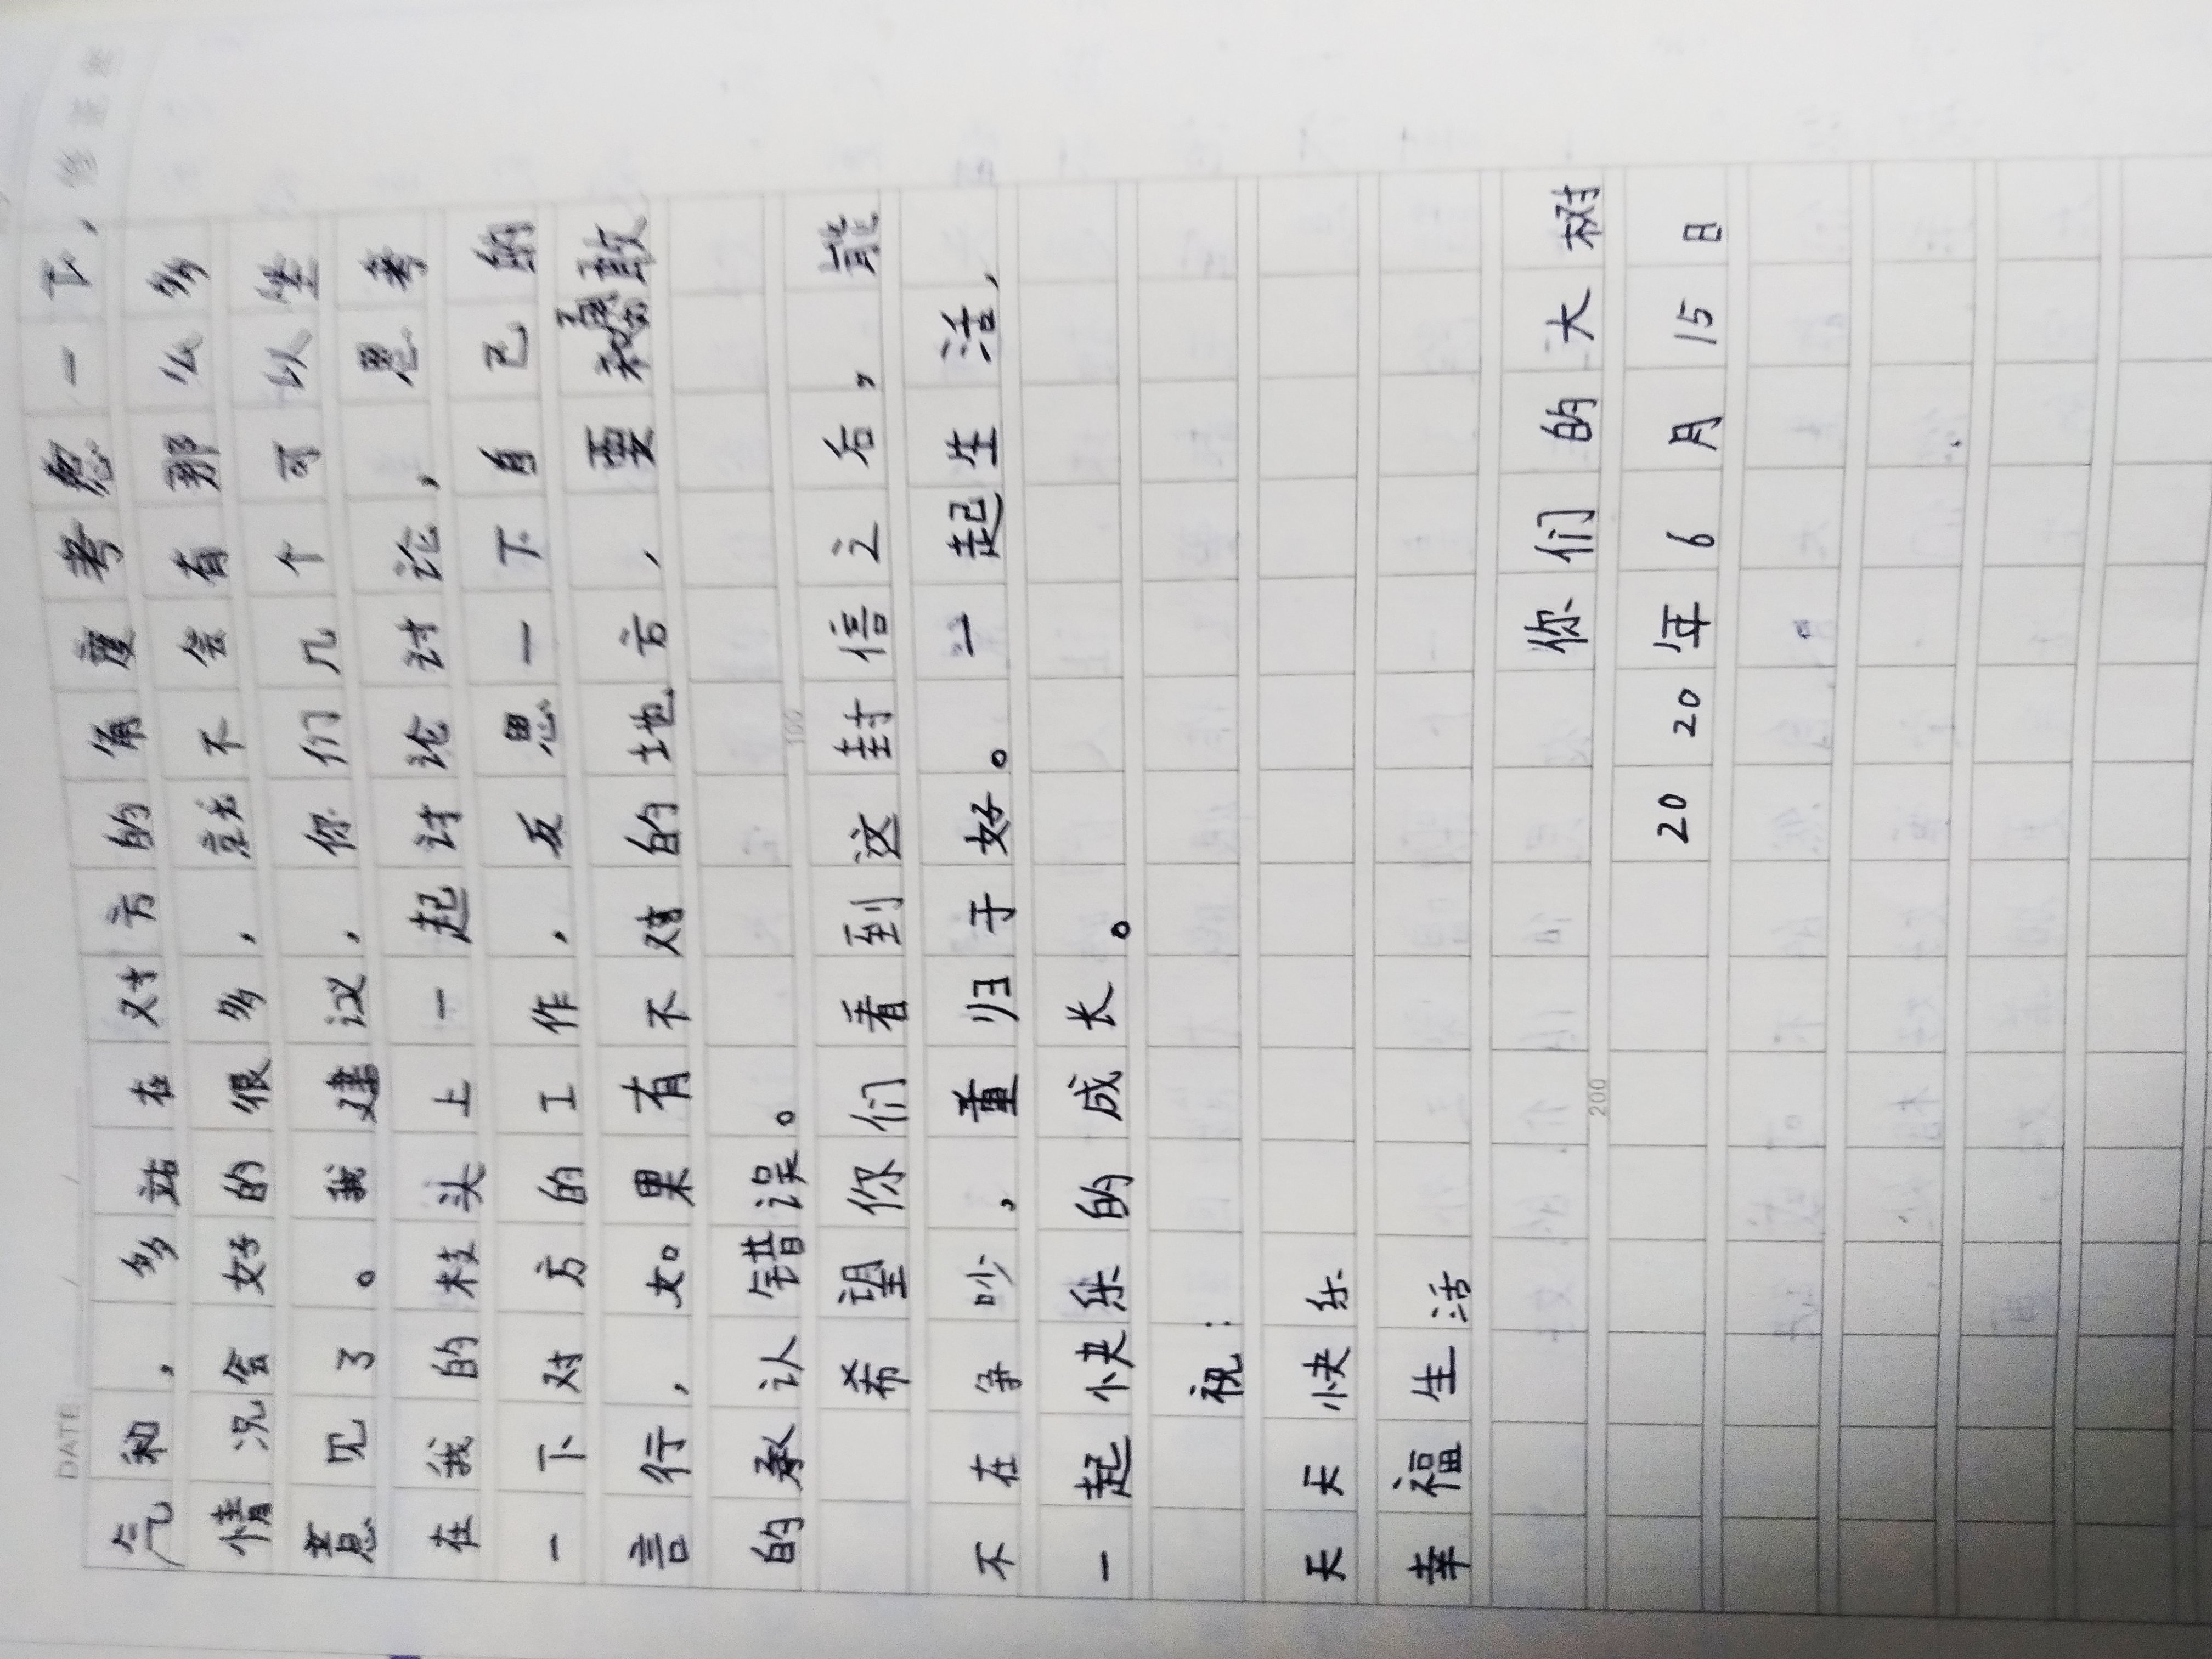 DATE / /
气和，多站在对方的角度考虑一下，
情况会好的很多，就不会有那么多
意见了。我建议，你们几个可以坐
在我的枝头上一起讨论讨论，思考
一下对方的工作，反思一下自己的
言行，如果有不对的地方，要勇敢
的承认错误。
100
希望你们看到这封信之后，能
不在争吵，重归于好。一起生活，
一起快乐的成长。
祝：
天天快乐
幸福生活
你们的大树
200
2020年6月15日